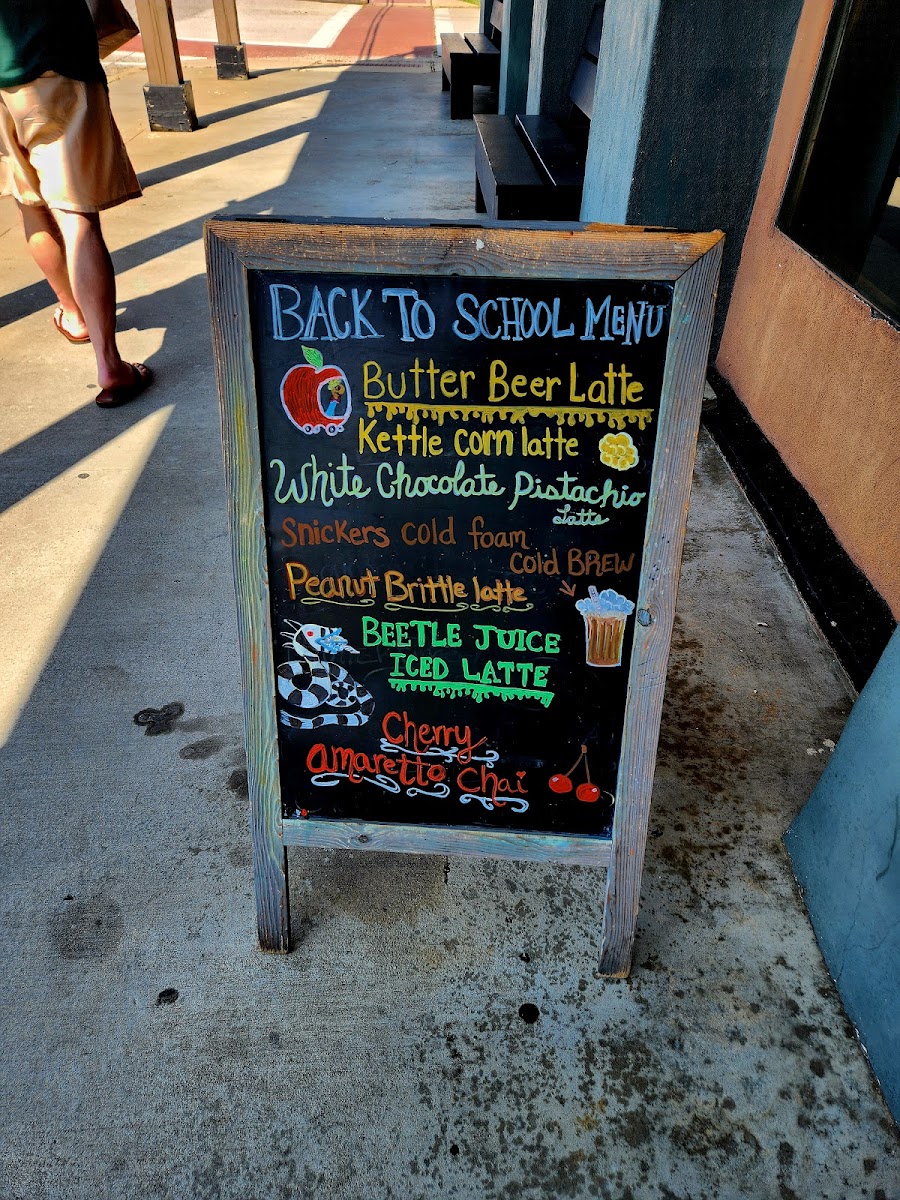 BACK TO SCHOOL MENU
Butter Beer Latte
Kettle corn latte
White Chocolate Pistachio
Latte
Snickers cold foam
cold BREW
Peanut Brittle latte
BEETLE JUICE
ICED LATTE
Cherry
amaretto chai